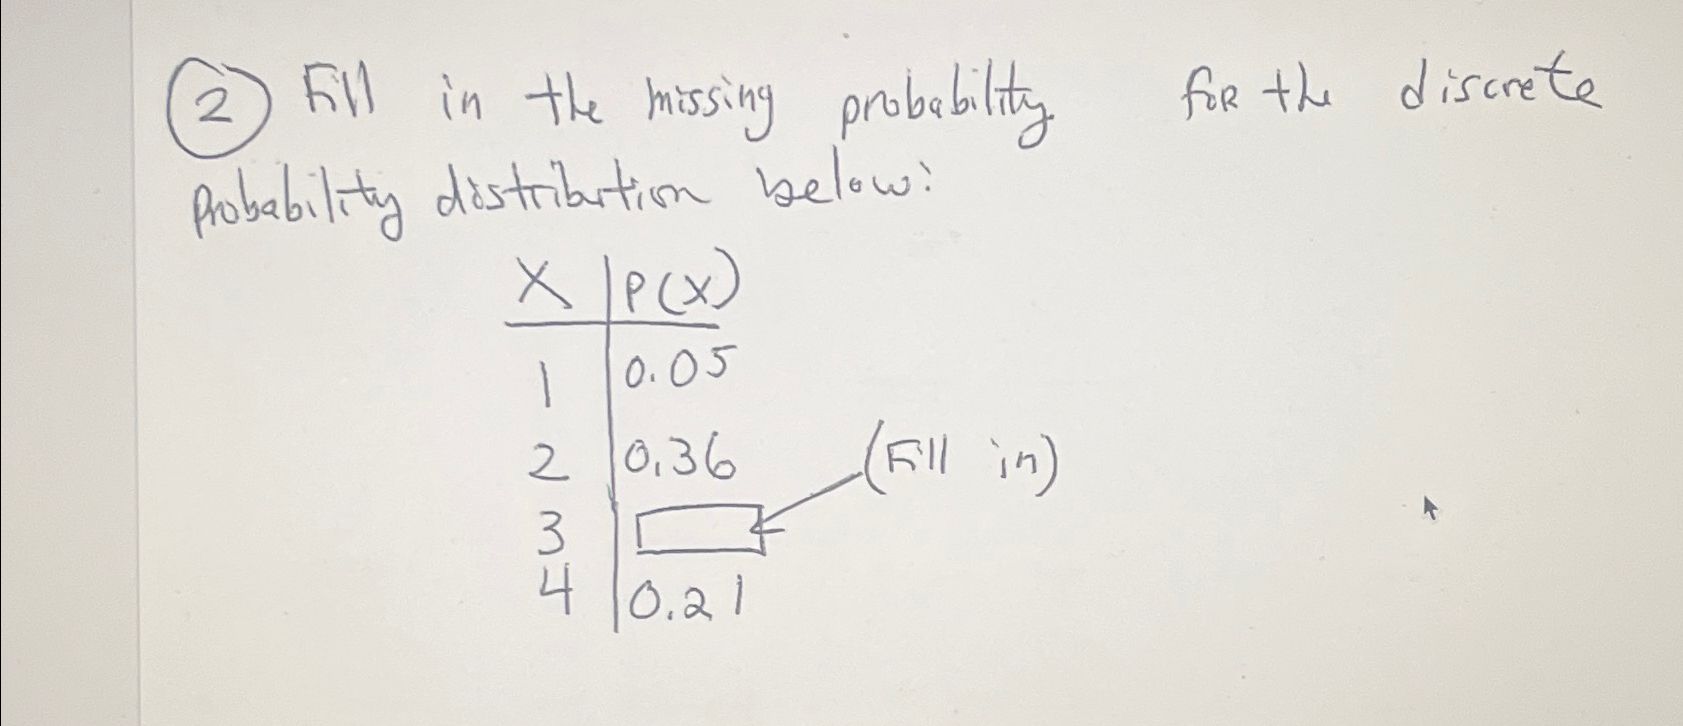 2 Fill in the missing probability for the discrete
probability distribution below:
X P(X)
1 0.05
2 0.36 (Fill in)
3
4 0.21